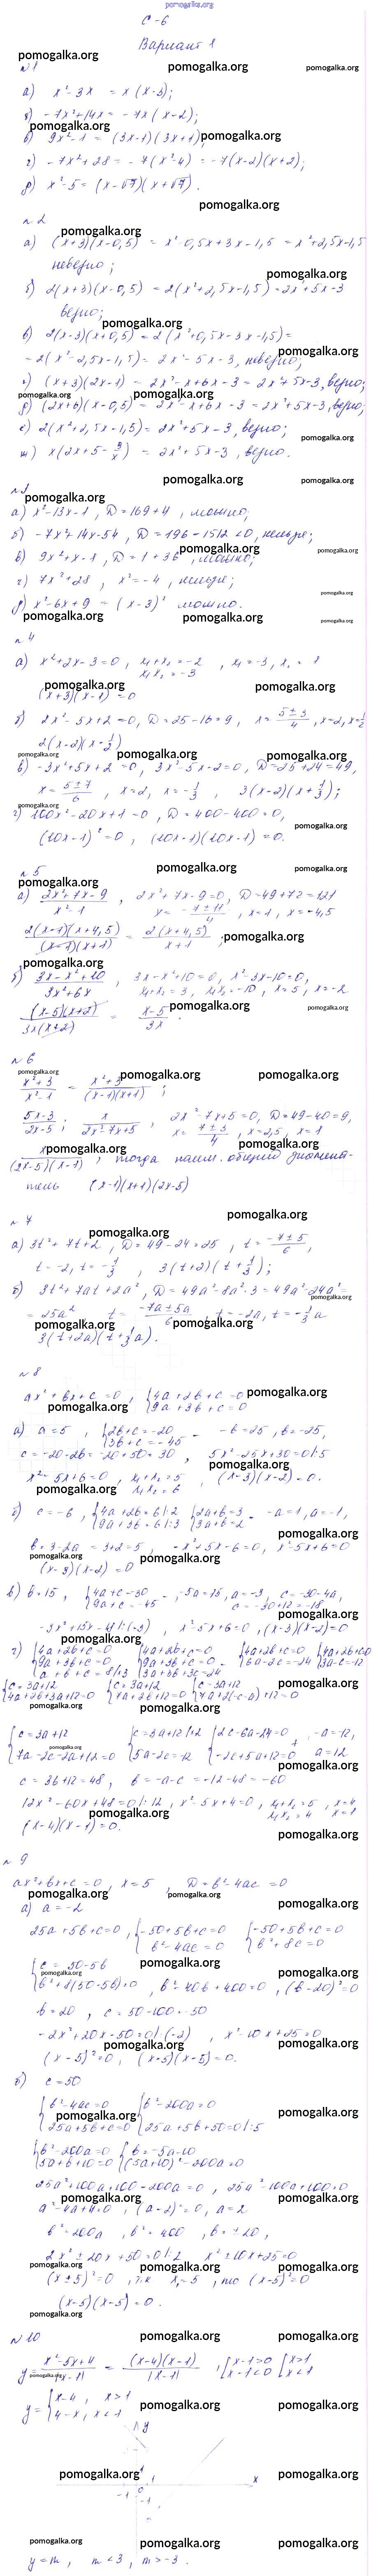 pomogalka.org
С-6
Вариант 1
№1
а) x² - 3x = x(x-3);
б) -7x² + 14x = -7x(x-2);
в) 9x² - 1 = (3x-1)(3x+1);
г) -7x² + 28 = -7(x²-4) = -7(x-2)(x+2);
д) x² - 5 = (x-√7)(x+√7).
№2
а) (x+3)(x-0,5) = x² - 0,5x + 3x - 1,5 = x² + 2,5x - 1,5
неверно;
б) 2(x+3)(x-0,5) = 2(x² + 2,5x - 1,5) = 2x² + 5x - 3
верно;
в) 2(x-3)(x+0,5) = 2(x² + 0,5x - 3x - 1,5) =
= 2(x² - 2,5x - 1,5) = 2x² - 5x - 3, неверно;
г) (x+3)(2x-1) = 2x² - x + 6x - 3 = 2x² + 5x - 3, верно;
д) (2x+6)(x-0,5) = 2x² - x + 6x - 3 = 2x² + 5x - 3, верно;
е) 2(x² + 2,5x - 1,5) = 2x² + 5x - 3, верно;
ж) x(2x + 5 - 3/x) = 2x² + 5x - 3, верно.
№3
а) x² - 13x - 1, D = 169 + 4, можно;
б) -7x² + 14x - 54, D = 196 - 1512 < 0, нельзя;
в) 9x² + x - 1, D = 1 + 36, можно;
г) 7x² + 28, x² = -4, нельзя;
д) x² - 6x + 9 = (x-3)² можно.
№4
а) x² + 2x - 3 = 0, x₁ + x₂ = -2, x₁ = -3, x₂ = 1
x₁x₂ = -3
(x+3)(x-1) = 0
б) 2x² - 5x + 2 = 0, D = 25 - 16 = 9, x = (5±3)/4, x = 2, x = 1/2
2(x-2)(x-1/2)
в) -3x² + 5x + 2 = 0, 3x² - 5x - 2 = 0, D = 25 + 24 = 49,
x = (5±7)/6, x = 2, x = -1/3, 3(x-2)(x+1/3);
г) 100x² - 20x + 1 = 0, D = 400 - 400 = 0,
(10x-1)² = 0, (10x-1)(10x-1) = 0.
№5
а) (2x²+7x-9)/(x²-1), 2x² + 7x - 9 = 0, D = 49 + 72 = 121
x = (-7±11)/4, x = 1, x = -4,5
2(x-1)(x+4,5)/((x-1)(x+1)) = 2(x+4,5)/(x+1);
б) (3x-x²+10)/(3x²+6x), 3x - x² + 10 = 0, x² - 3x - 10 = 0,
x₁ + x₂ = 3, x₁x₂ = -10, x = 5, x = -2
(x-5)(x+2)/(3x(x+2)) = (x-5)/3x.
№6
(x²+3)/(x²-1) = (x²+3)/((x-1)(x+1));
(5x-3)/(2x-5); x/(2x²-7x+5), 2x² - 7x + 5 = 0, D = 49 - 40 = 9,
x = (7±3)/4, x = 2,5, x = 1
x/((2x-5)(x-1)), тогда наим. общий знамена-
тель (x-1)(x+1)(2x-5)
№7
а) 3t² + 7t + 2, D = 49 - 24 = 25, t = (-7±5)/6,
t = -2, t = -1/3, 3(t+2)(t+1/3);
б) 3t² + 7at + 2a², D = 49a² - 8a²·3 = 49a² - 24a² =
= 25a² t = (-7a±5a)/6, t = -2a, t = -1/3a
3(t+2a)(t+1/3a).
№8
ax² + bx + c = 0, {4a + 2b + c = 0
{9a + 3b + c = 0
а) a = 5, {2b + c = -20
{3b + c = -45 - -b = 25, b = -25,
c = -20 - 2b = -20 + 50 = 30, 5x² - 25x + 30 = 0 |:5
x² - 5x + 6 = 0, x₁ + x₂ = 5, (x-3)(x-2) = 0.
x₁x₂ = 6
б) c = -6, {4a + 2b = 6 |:2 {2a + b = 3
{9a + 3b = 6 |:3 {3a + b = 2 - -a = 1, a = -1,
b = 3 - 2a = 3 + 2 = 5, -x² + 5x - 6 = 0, x² - 5x + 6 = 0
(x-3)(x-2) = 0
в) b = 15, {4a + c = -30
{9a + c = -45 -, -5a = 15, a = -3, c = -30 - 4a,
c = -30 + 12 = -18
-3x² + 15x - 18 |:(-3), x² - 5x + 6 = 0, (x-3)(x-2) = 0
г) {4a + 2b + c = 0 {4a + 2b + c = 0 {4a + 2b + c = 0 {4a + 2b + c = 0
{9a + 3b + c = 0 {9a + 3b + c = 0 - {6a - 2c = -24 {3a - c = -12
{a + b + c = 8 |·3 {3a + 3b + 3c = 24
{c = 3a + 12 {c = 3a + 12 {c = 3a + 12
{4a + 2b + 3a + 12 = 0 {7a + 2b + 12 = 0 {7a + 2(-c-a) + 12 = 0
{c = 3a + 12 {c = 3a + 12 |·2 {2c - 6a - 24 = 0 -a = -12,
{7a - 2c - 2a + 12 = 0 {5a - 2c = -12 {-2c + 5a + 12 = 0 + a = 12
c = 36 + 12 = 48, b = -a - c = -12 - 48 = -60
12x² - 60x + 48 = 0 |:12, x² - 5x + 4 = 0, x₁ + x₂ = 5, x = 4
x₁x₂ = 4 x = 1
(x-4)(x-1) = 0.
№9
ax² + bx + c = 0, x = 5, D = b² - 4ac = 0
а) a = -2
25a + 5b + c = 0, {-50 + 5b + c = 0 {-50 + 5b + c = 0
{b² - 4ac = 0 {b² + 8c = 0
{c = 50 - 5b
{b² + 8(50-5b) = 0, b² - 40b + 400 = 0, (b-20)² = 0
b = 20, c = 50 - 100 = -50
-2x² + 20x - 50 = 0 |:(-2), x² - 10x + 25 = 0
(x-5)² = 0, (x-5)(x-5) = 0.
б) c = 50
{b² - 4ac = 0 {b² - 200a = 0
{25a + 5b + c = 0 {25a + 5b + 50 = 0 |:5
{b² - 200a = 0 {b = -5a - 10
{5a + b + 10 = 0 {(5a+10)² - 200a = 0
25a² + 100a + 100 - 200a = 0, 25a² - 100a + 100 = 0
a² - 4a + 4 = 0, (a-2)² = 0, a = 2
b² = 200a, b² = 400, b = ±20,
2x² ± 20x + 50 = 0 |:2 x² ± 10x + 25 = 0
(x±5)² = 0, т.к. x₁ = 5, то (x-5)² = 0
(x-5)(x-5) = 0.
№10
y = (x²-5x+4)/|x-1| = (x-4)(x-1)/|x-1|, {x-1 > 0 {x > 1
{x-1 < 0 {x < 1
y = {x-4, x > 1
{4-x, x < 1
y
1
-1 0 1 x
-1
y = m, m < 3, m > -3.